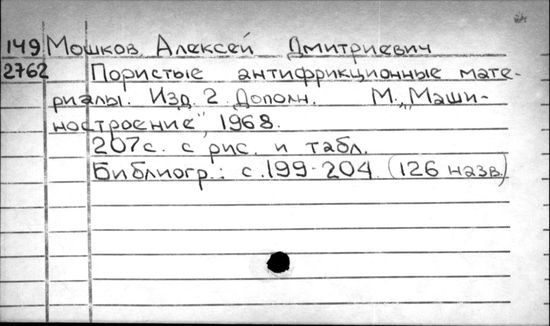 149 Мошков Алексей Дмитриевич
2762 Пористые антифрикционные мате-
риалы. Изд. 2 Дополн. М. „Маши-
ностроение", 1968.
207с. с рис. и табл.
Библиогр.: с. 199-204 (126 назв.)